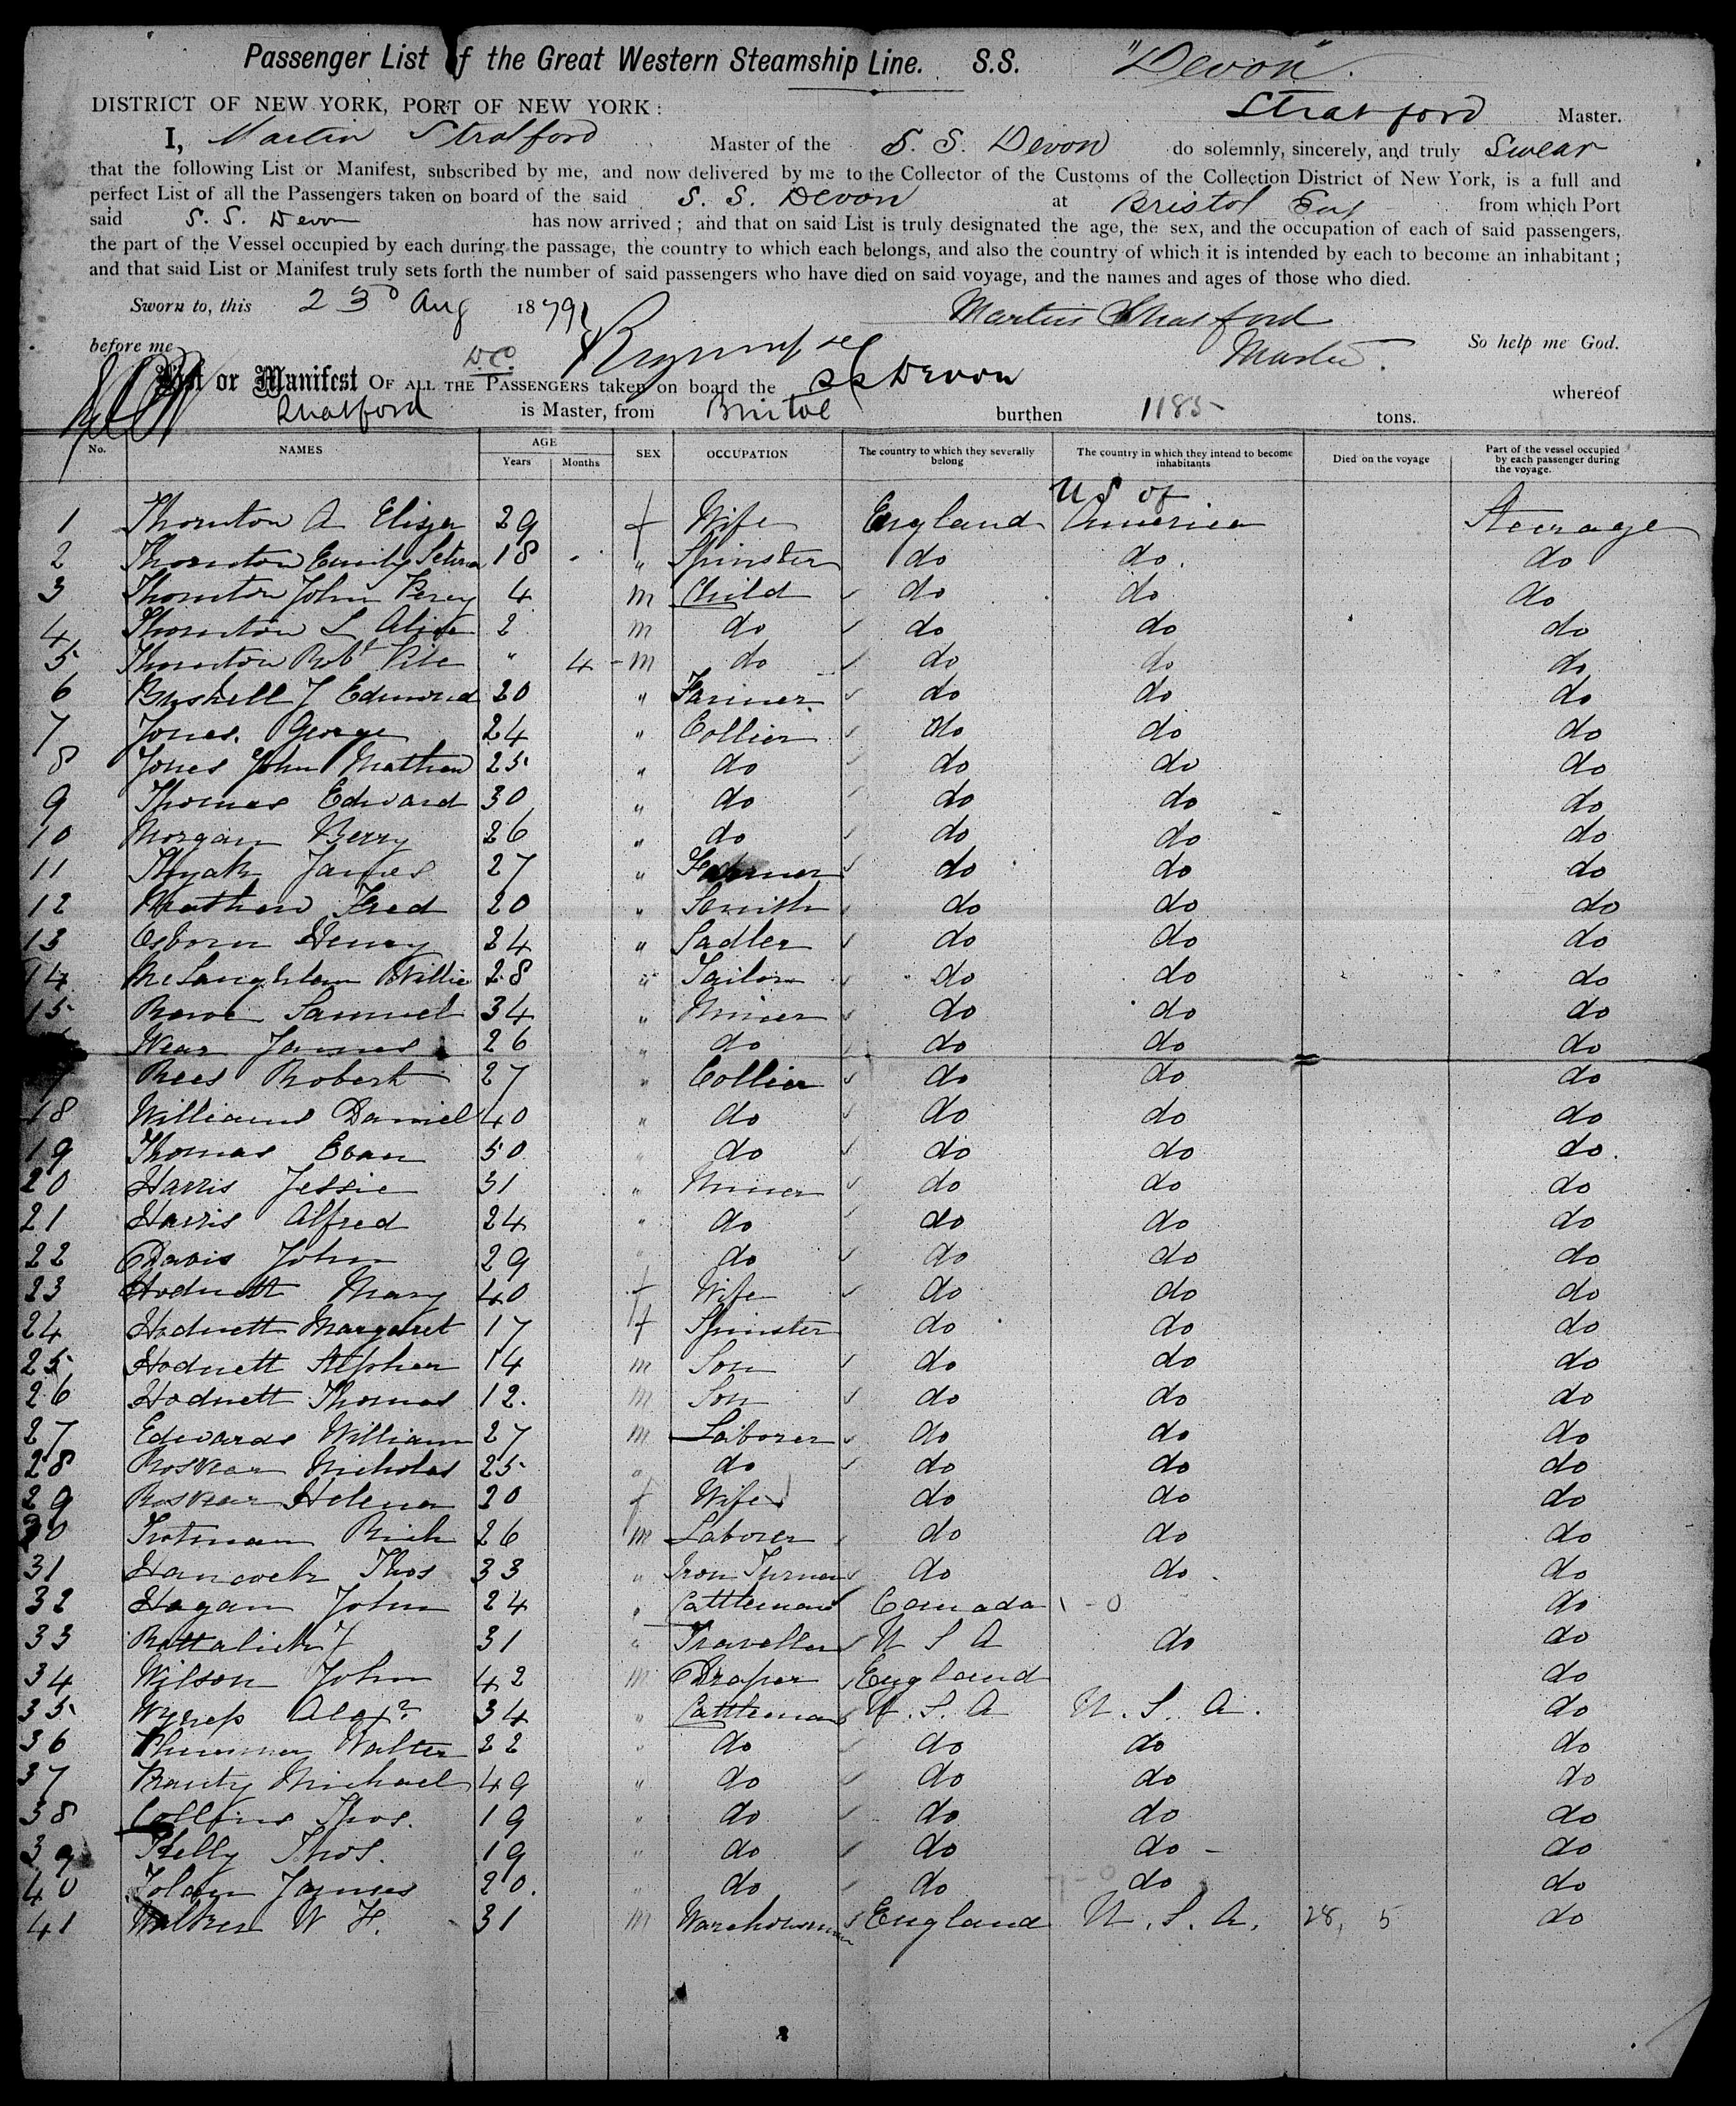 Passenger List of the Great Western Steamship Line. S.S. "Devon".
DISTRICT OF NEW YORK, PORT OF NEW YORK: Stratford Master.
I, Martin Stratford Master of the S. S. Devon do solemnly, sincerely, and truly Swear
that the following List or Manifest, subscribed by me, and now delivered by me to the Collector of the Customs of the Collection District of New York, is a full and
perfect List of all the Passengers taken on board of the said S. S. Devon at Bristol Eng from which Port
said S. S. Devon has now arrived; and that on said List is truly designated the age, the sex, and the occupation of each of said passengers,
the part of the Vessel occupied by each during the passage, the country to which each belongs, and also the country of which it is intended by each to become an inhabitant;
and that said List or Manifest truly sets forth the number of said passengers who have died on said voyage, and the names and ages of those who died.
Sworn to, this 23d Aug 1879 Martin Stratford
before me Master. So help me God.
D.C.
List or Manifest OF ALL THE PASSENGERS taken on board the SS Devon whereof
Stratford is Master, from Bristol burthen 1185 tons.
No. NAMES AGE Years Months SEX OCCUPATION The country to which they severally belong The country in which they intend to become inhabitants Died on the voyage Part of the vessel occupied by each passenger during the voyage.
US of
1 Thornton A Eliza 29 f Wife England America Steerage
2 Thornton Emily 18 " Spinster do do. do
3 Thornton John Percy 4 m Child do do do
4 Thornton S 2 m do do do do
5 Thornton Robt " 4 - m do do do do
6 Bushell J Edmond 20 " Farmer do do do
7 Jones. George 24 " Collier do do do
8 Jones John Mathew 25 " do do do do
9 Thomas Edward 30 " do do do do
10 Morgan 26 " do do do do
11 James 27 " Farmer do do do
12 Mathew Fred 20 " Smith do do do
13 Osborn Henry 24 " Sadler do do do
14 McLaughlan Willie 28 " do do do
15 Rowe Samuel 34 " Miner do do do
Wear James 26 " do do do do
7 Rees Robert 27 " Collier do do do
18 Williams Daniel 40 " do do do do
19 Thomas Evan 50 " do do do do.
20 Harris Jessie 31 " Miner do do do
21 Harris Alfred 24 " do do do do
22 Davis John 29 " do do do do
23 Hodnett Mary 40 f Wife do do do
24 Hodnett Margaret 17 f Spinster do do do
25 Hodnett Stephen 14 m Son do do do
26 Hodnett Thomas 12. m Son do do do
27 Edwards William 27 m Laborer do do do
28 Roskear Nicholas 25 " do do do do
29 Roskear Helena 20 f Wife do do do
30 Trotman Rich 26 m Laborer do do do
31 Hancock Thos 33 " Iron Turner do do do
32 Hagan John 24 " Cattleman Canada do
33 J 31 " Traveller U S A do do
34 Wilson John 42 m Draper England do
35 Alexr 34 " Cattleman U. S. A U. S. A. do
36 Walter 22 " do do do do
37 Michael 49 " do do do do
38 Collins Thos. 19 " do do do do
39 Kelly Thos. 19 " do do do - do
40 James 20. " do do do do
41 Walker W H. 31 m Warehouseman England U. S. A. 28, 5 do